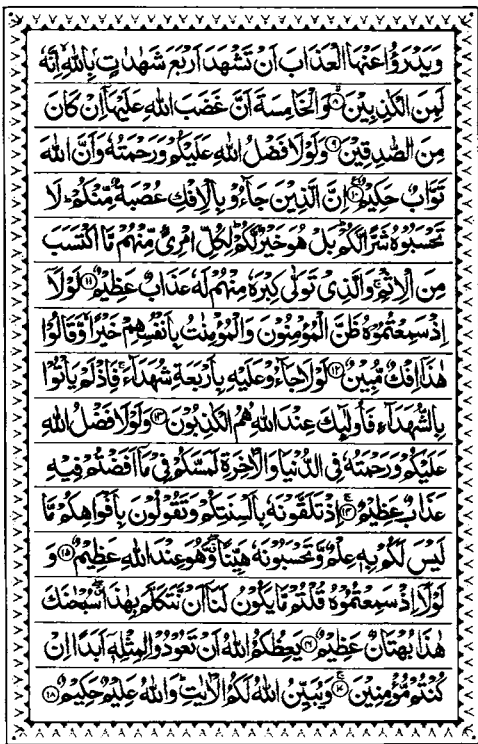 وَيَدْرَؤُا عَنْهَا الْعَذَابَ اَنْ تَشْهَدَ اَرْبَعَ شَهٰدٰتٍۭ بِاللّٰهِ ۙ اِنَّهٗ
لَمِنَ الْكٰذِبِيْنَ ۙ﴿۸﴾ وَالْخَامِسَةَ اَنَّ غَضَبَ اللّٰهِ عَلَيْهَاۤ اِنْ كَانَ
مِنَ الصّٰدِقِيْنَ ﴿۹﴾ وَلَوْلَا فَضْلُ اللّٰهِ عَلَيْكُمْ وَرَحْمَتُهٗ وَاَنَّ اللّٰهَ
تَوَّابٌ حَكِيْمٌ ﴿۱۰﴾ اِنَّ الَّذِيْنَ جَآءُوْ بِالْاِفْكِ عُصْبَةٌ مِّنْكُمْ ؕ لَا
تَحْسَبُوْهُ شَرًّا لَّكُمْ ؕ بَلْ هُوَ خَيْرٌ لَّكُمْ ؕ لِكُلِّ امْرِئٍ مِّنْهُمْ مَّا اكْتَسَبَ
مِنَ الْاِثْمِ ۚ وَالَّذِيْ تَوَلّٰى كِبْرَهٗ مِنْهُمْ لَهٗ عَذَابٌ عَظِيْمٌ ﴿۱۱﴾ لَوْلَاۤ
اِذْ سَمِعْتُمُوْهُ ظَنَّ الْمُؤْمِنُوْنَ وَالْمُؤْمِنٰتُ بِاَنْفُسِهِمْ خَيْرًا ۙ وَّقَالُوْا
هٰذَاۤ اِفْكٌ مُّبِيْنٌ ﴿۱۲﴾ لَوْلَا جَآءُوْ عَلَيْهِ بِاَرْبَعَةِ شُهَدَآءَ ۚ فَاِذْ لَمْ يَاْتُوْا
بِالشُّهَدَآءِ فَاُولٰٓئِكَ عِنْدَ اللّٰهِ هُمُ الْكٰذِبُوْنَ ﴿۱۳﴾ وَلَوْلَا فَضْلُ اللّٰهِ
عَلَيْكُمْ وَرَحْمَتُهٗ فِى الدُّنْيَا وَالْاٰخِرَةِ لَمَسَّكُمْ فِيْ مَاۤ اَفَضْتُمْ فِيْهِ
عَذَابٌ عَظِيْمٌ ۚ﴿۱۴﴾ اِذْ تَلَقَّوْنَهٗ بِاَلْسِنَتِكُمْ وَتَقُوْلُوْنَ بِاَفْوَاهِكُمْ مَّا
لَيْسَ لَكُمْ بِهٖ عِلْمٌ وَّتَحْسَبُوْنَهٗ هَيِّنًا ۖ وَّهُوَ عِنْدَ اللّٰهِ عَظِيْمٌ ﴿۱۵﴾ وَ
لَوْلَاۤ اِذْ سَمِعْتُمُوْهُ قُلْتُمْ مَّا يَكُوْنُ لَنَاۤ اَنْ نَّتَكَلَّمَ بِهٰذَا ۖ سُبْحٰنَكَ
هٰذَا بُهْتَانٌ عَظِيْمٌ ﴿۱۶﴾ يَعِظُكُمُ اللّٰهُ اَنْ تَعُوْدُوْا لِمِثْلِهٖۤ اَبَدًا اِنْ
كُنْتُمْ مُّؤْمِنِيْنَ ۚ﴿۱۷﴾ وَيُبَيِّنُ اللّٰهُ لَكُمُ الْاٰيٰتِ ؕ وَاللّٰهُ عَلِيْمٌ حَكِيْمٌ ﴿۱۸﴾